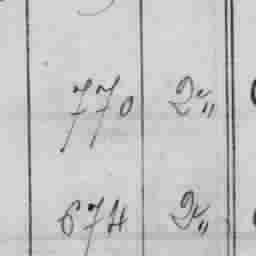 770 2„
674 2„